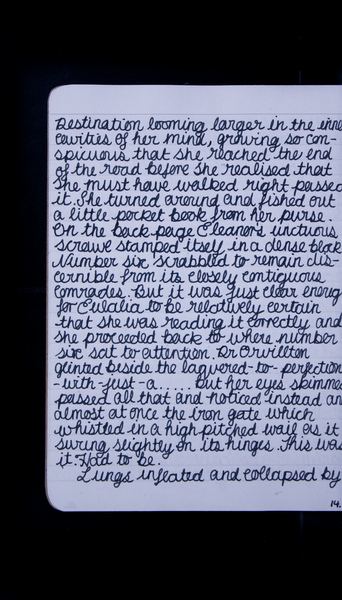 Destination looming larger in the inne
cavities of her mind, growing so con-
spicuous that she reached the end
of the road before she realised that
she must have walked right passed
it. She turned around and fished out
a little pocket book from her purse.
On the back page Eleanor's unctuous
scrawl stamped itself in a dense black
Number six scrabbled to remain dis-
cernible from its closely contiguous
comrades. But it was just clear enough
for Eulalia to be relatively certain
that she was reading it correctly and
she proceeded back to where number
six sat to attention. Dr Orvillton
glinted beside the laquered-to-perfection
-with-just-a..... but her eyes skimmed
passed all that and noticed instead an
almost at once the iron gate which
whistled in a high pitched wail as it
swung slightly on its hinges. This was
it. Had to be.
Lungs inflated and collapsed by
14.